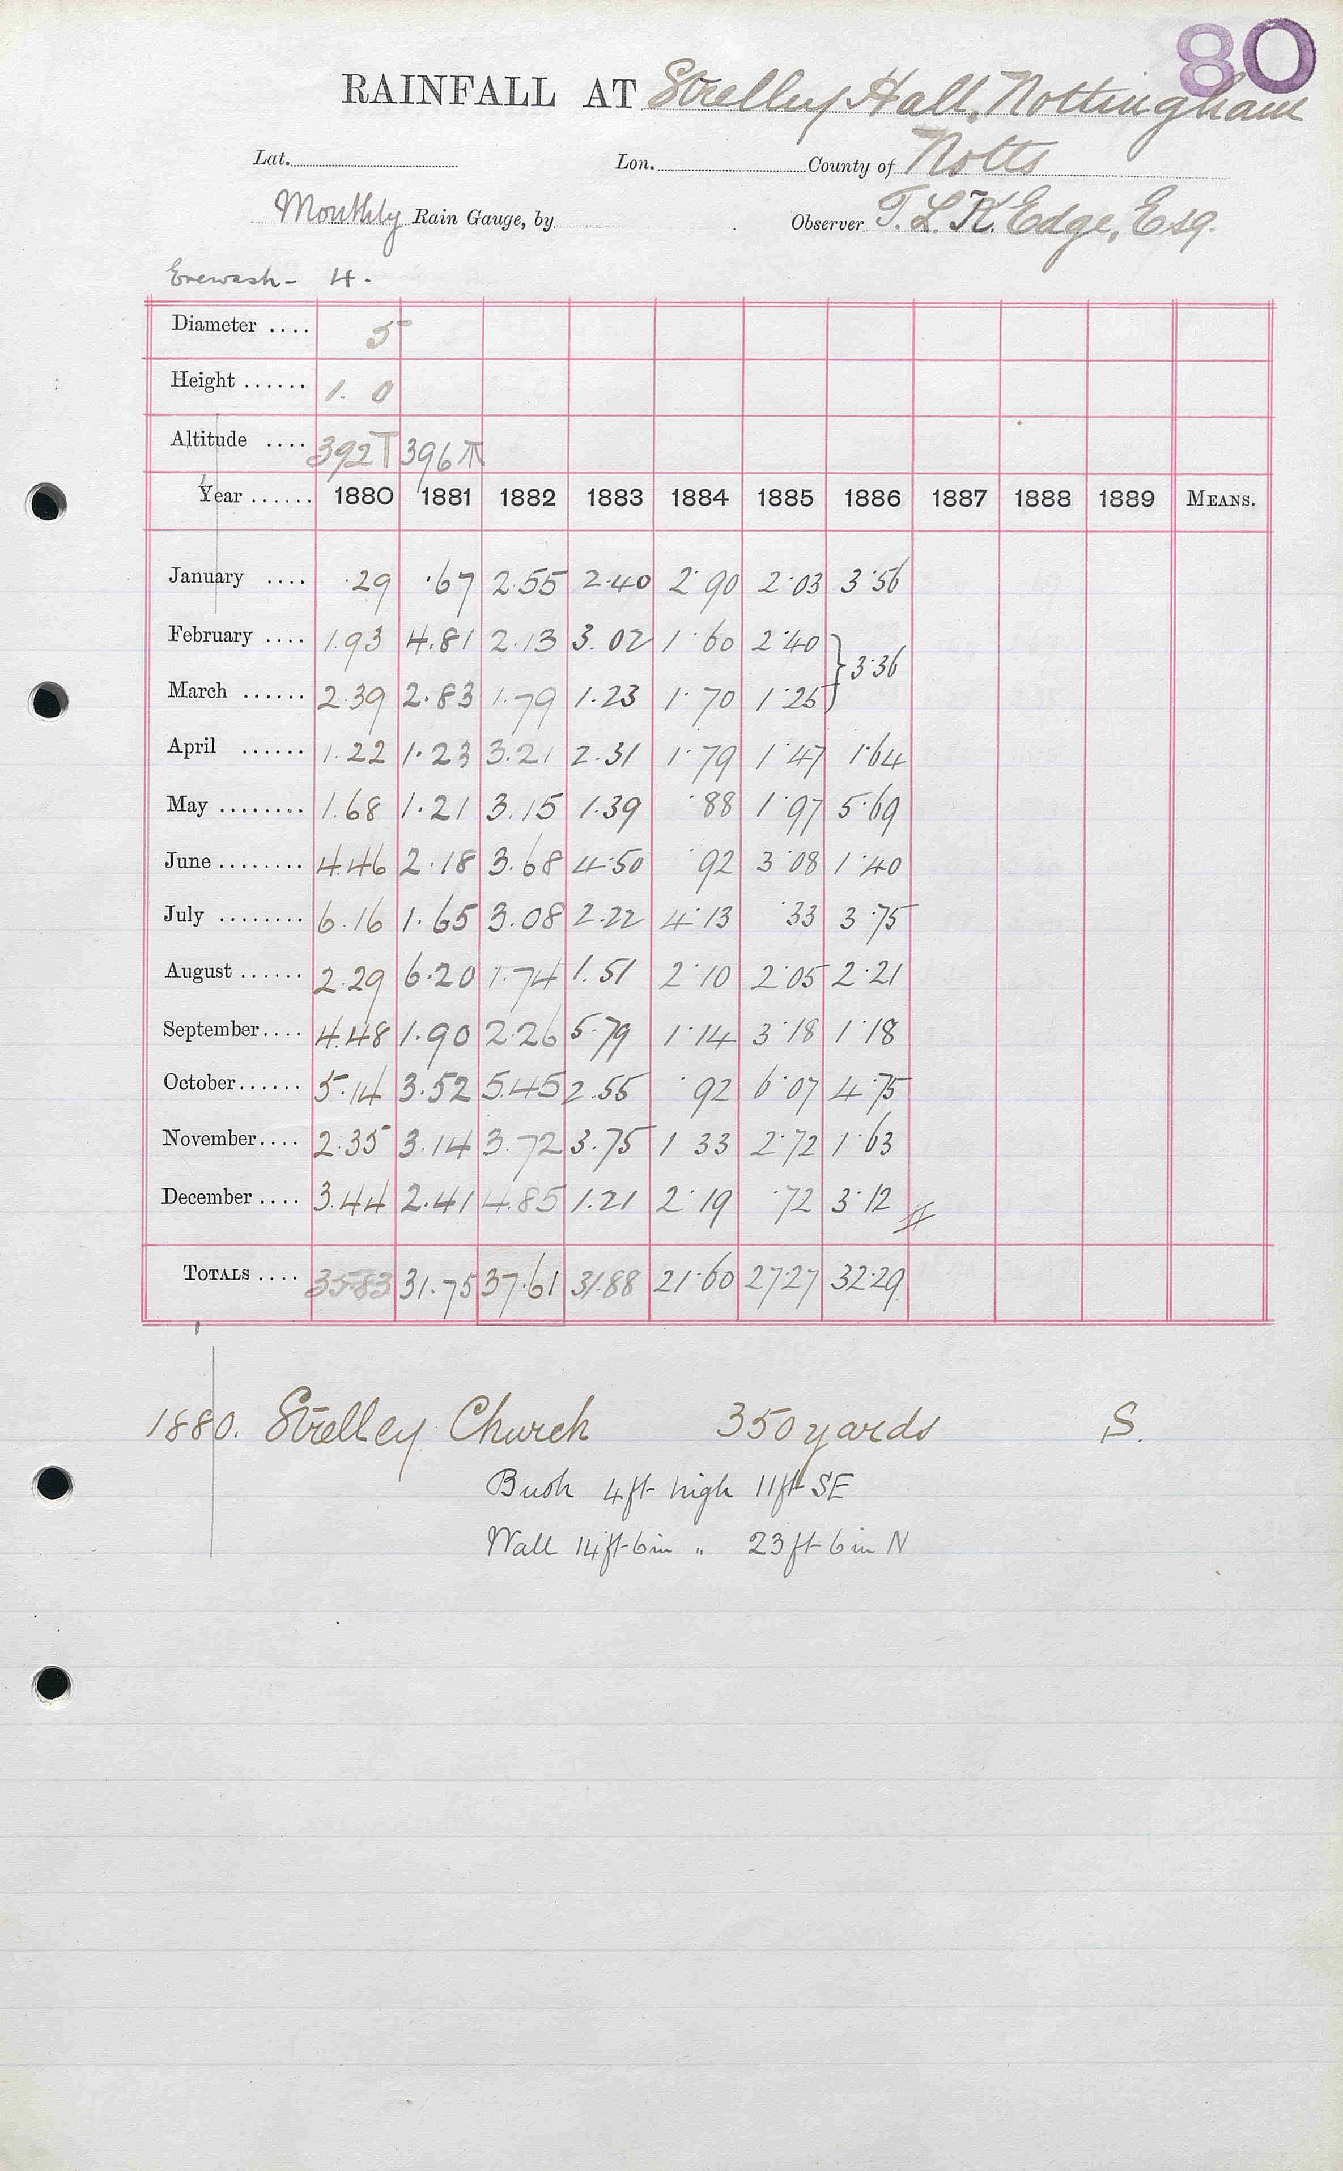 80
RAINFALL AT Strelley Hall, Nottingham
Lat. Lon. County of Notts
Monthly Rain Gauge, by Observer T. L. K. Edge, Esq.
Erewash - 4.
Diameter .... 5
Height ...... 1. 0
Altitude .... 392 T 396
Year ...... 1880 1881 1882 1883 1884 1885 1886 1887 1888 1889 MEANS.
January .... .29 .67 2.55 2.40 2.90 2.03 3.56
February .... 1.93 4.81 2.13 3.02 1.60 2.40 } 3.36
March ...... 2.39 2.83 1.79 1.23 1.70 1.25
April ...... 1.22 1.23 3.21 2.31 1.79 1.47 1.64
May ........ 1.68 1.21 3.15 1.39 .88 1.97 5.69
June ........ 4.46 2.18 3.68 4.50 .92 3.08 1.40
July ........ 6.16 1.65 3.08 2.22 4.13 .33 3.75
August ...... 2.29 6.20 1.74 1.51 2.10 2.05 2.21
September .... 4.48 1.90 2.26 5.79 1.14 3.18 1.18
October ...... 5.14 3.52 5.45 2.55 .92 6.07 4.75
November .... 2.35 3.14 3.72 3.75 1 33 2.72 1.63
December .... 3.44 2.41 4.85 1.21 2.19 .72 3.12
TOTALS .... 35.83 31.75 37.61 31.88 21.60 27.27 32.29
1880. Strelley Church 350 yards S.
Bush 4ft high 11ft SE
Wall 14ft-6in " 23ft-6in N